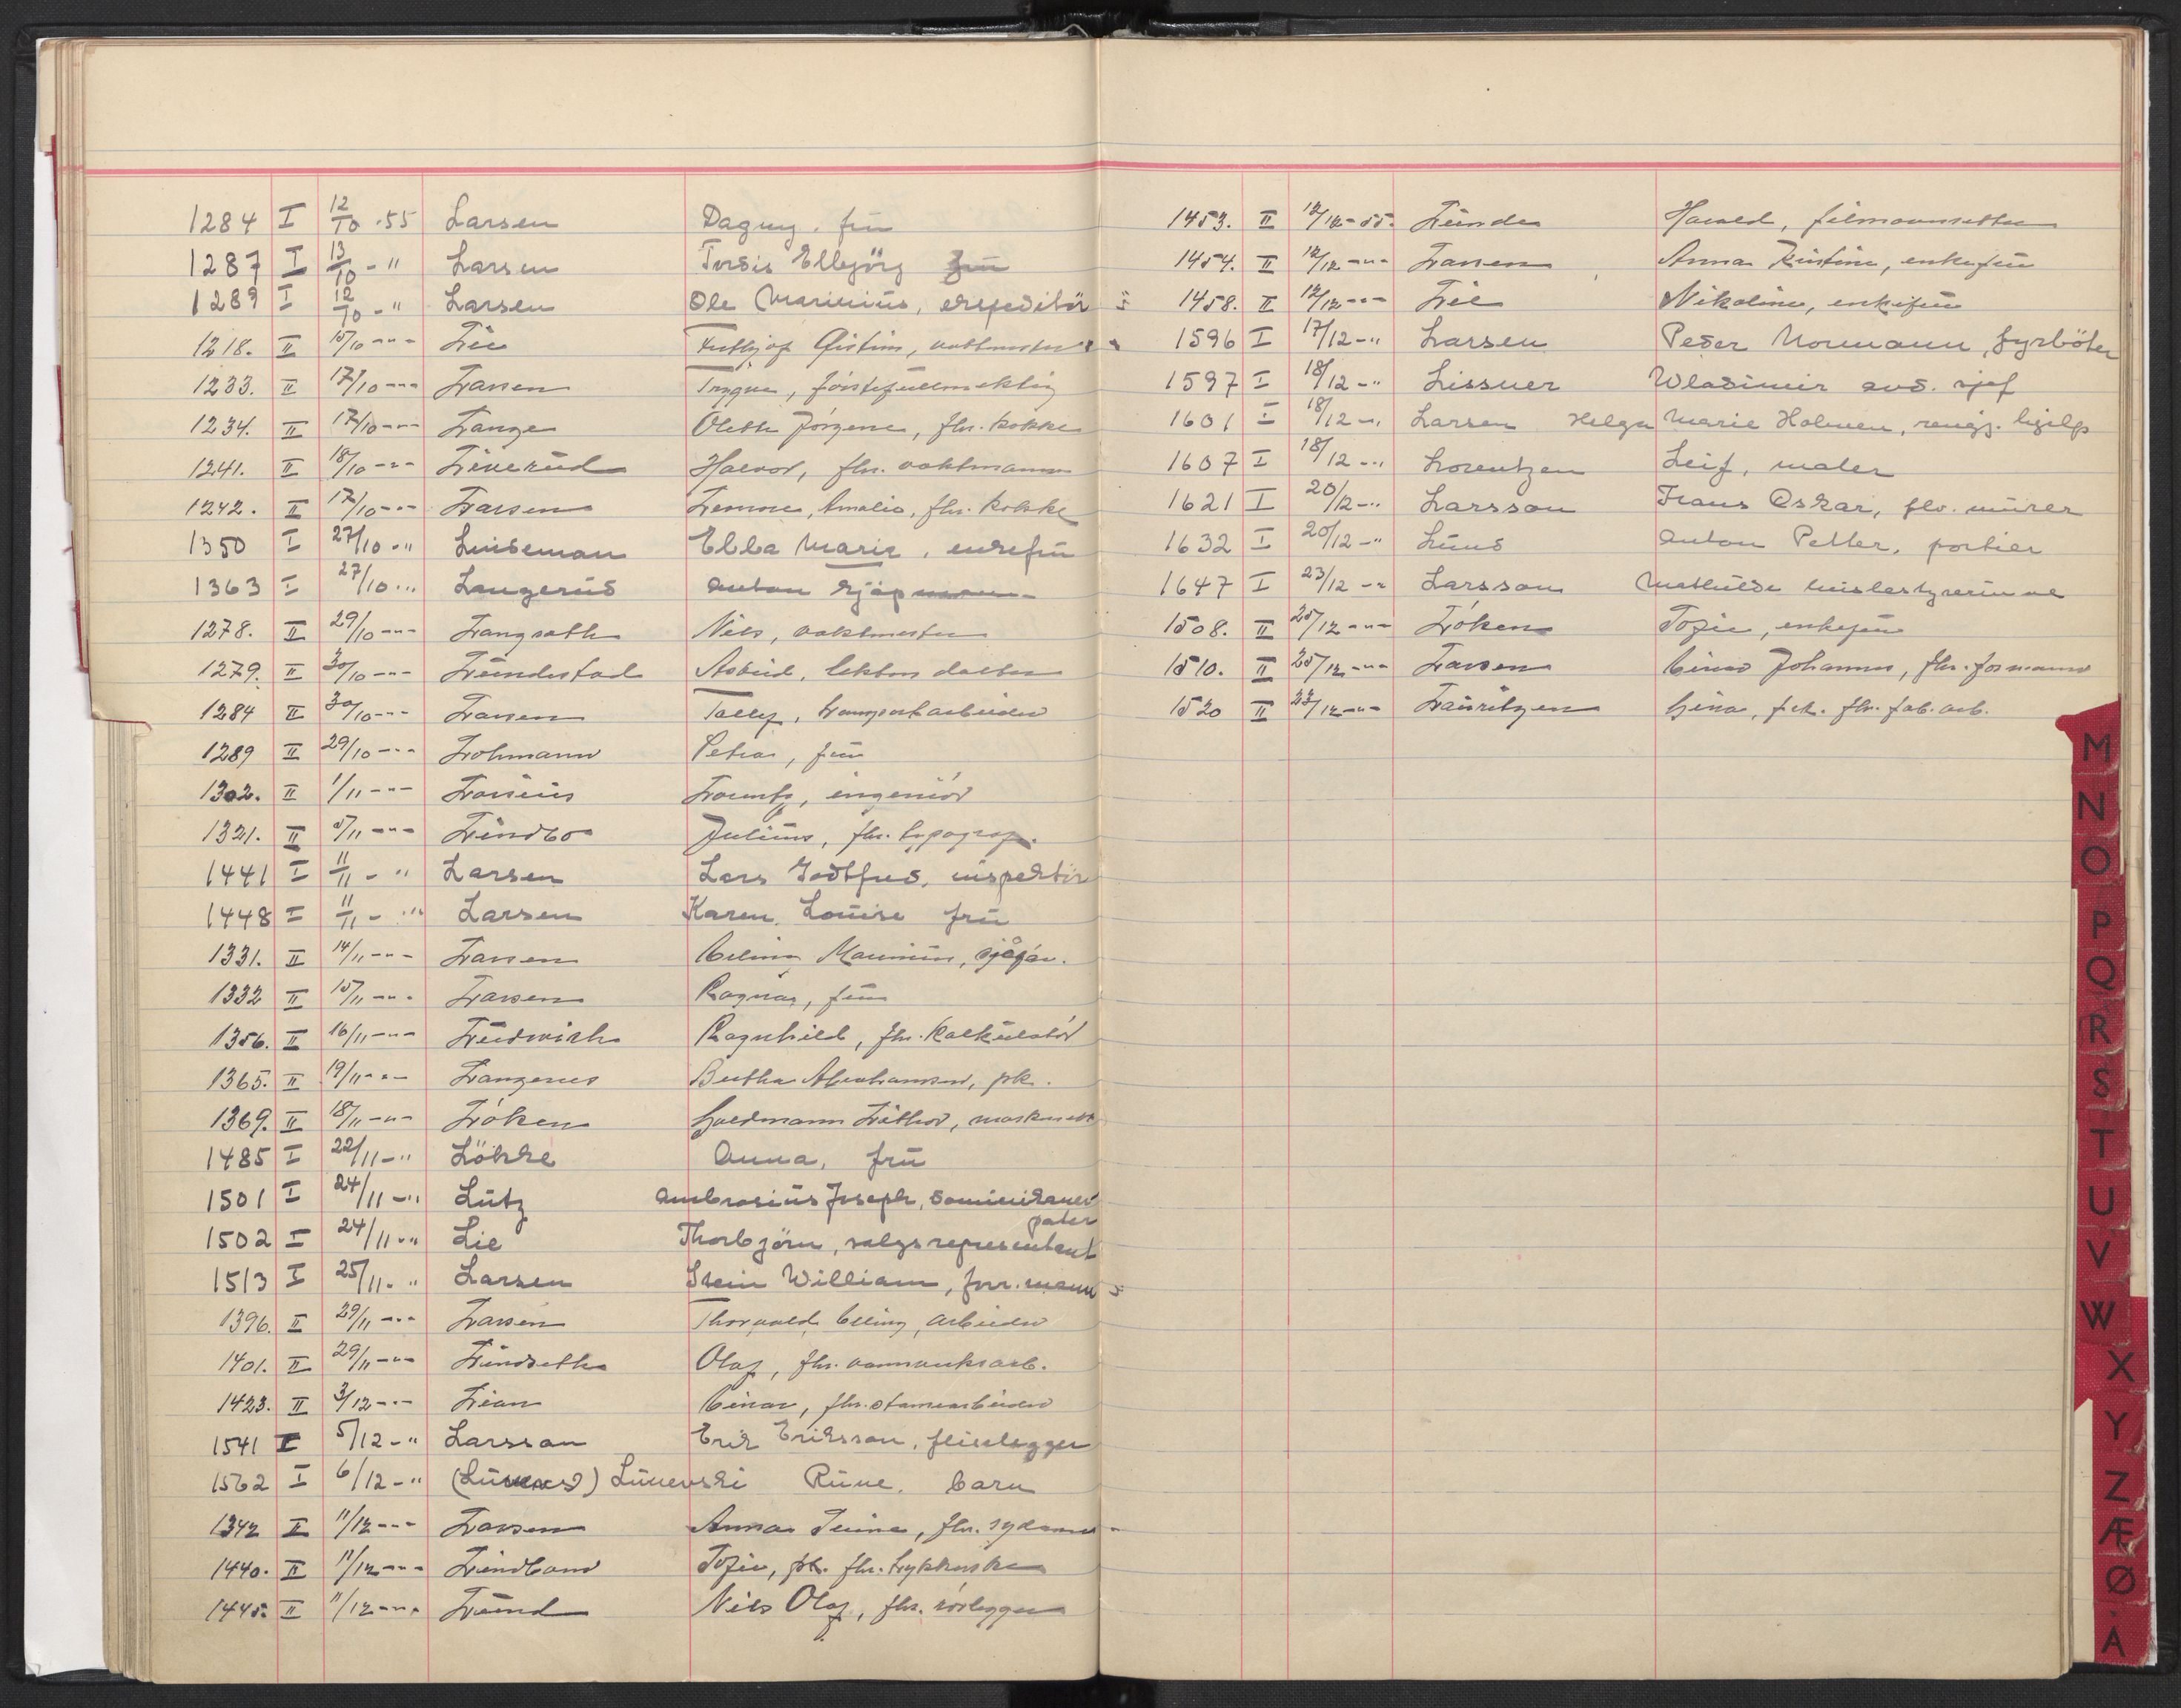 1284 I 12/10 -55 Larsen Dagny, frü
1287 I 13/10 - " Larsen Tordis Elbjörg frü
1289 I 12/10 - " Larsen Ole Marinius, expeditör
1218. II 15/10 -"- Lie vaktmester
1233. II 17/10 -"- Larsen Trygve, förstefullmektig
1234. II 17/10 -"- Lange Olette Jörgine, fhv. kokke
1241. II 18/10 -"- Liverud Halvor, fhv. vaktmann
1242. II 17/10 -"- Larsen Amalie, fhv. kokke
1350 I 27/10 - " Lindeman Ebba Marie, enkefrü
1363 I 27/10 - " Langerüd Anton sjåp
1278. II 29/10 -"- Langseth Nils, vaktmester
1279. II 30/10 -"- Lundestad Astrid, lektors datter
1284 II 30/10 -"- Larsen transportarbeider
1289 II 29/10 -"- Lohmann Petra, frü
1302. II 1/11 -"- Lorentz, ingeniör
1321. II 5/11 -"- Lindbo Julius, fhv. typograf.
1441 I 11/11 - " Larsen Lars Godtfred, inspektör
1448 I 11/11 - " Larsen Karen Louise frü
1331. II 14/11 -"- Larsen Erling Marinius, sjåför.
1332 II 15/11 -"- Larsen Ragna, frü
1356. II 16/11 -"- Ludwich Ragnhild, fhv. kalkulatör
1365. II 19/11 -"- Langerud Bertha Abrahamsen, pk.
1369. II 18/11 -"- Löken
1485 I 22/11 - " Lökke Anna, frü
1501 I 24/11 - " Lütz Ambrosiüs Joseph, dominikaner
pater
1502 I 24/11 - " Lie Thorbjörn, salgsrepresentant
1513 I 25/11 - " Larsen Stein William, forr.mann
1396. II 29/11 -"- Larsen Thorvald Erling, arbeider
1401. II 29/11 -"- Lindseth Olaf, fhv. vannverksarb.
1423. II 3/12 -"- Lian Einar, fhv.
1541 I 5/12 - " Larsson Erik Eriksson, fliselegger
1562 I 6/12 - " Lünevski Rüne, barn
1342 II 11/12 -"- Larsen Anna fhv. sydame
1440. II 11/12 -"- Lindland Sofie, pk. fhv. trykkerske
1445. II 11/12 -"- Lund Nils Olaf, fhv. rörlegger
1453. II 12/12 -55. Lunde Harald, filmoversetter
1454. II 12/12 -"- Larsen Anna Kristine, enkefrü
1458. II 12/12 -"- Lie Nikoline, enkefrü
1596 I 17/12 - " Larsen Peder Normann, fyrböter
1597 I 18/12 - " Lissner Wladimir avd. sjef
1601 I 18/12 - " Larsen Helga Marie Holmen, rengj. hjelp
1607 I 18/12 - " Lorentzen Leif, maler
1621 I 20/12 - " Larsson Frans Oskar, fhv. mürer
1632 I 20/12 - " Lünd Anton Petter, portier
1647 I 23/12 - " Larsson Mathilde hüsbestyrerinne
1508. II 25/12 -"- Löken Sofie, enkefrü
1510. II 25/12 -"- Larsen Einar Johannes, fhv. formann
1520 II 23/12 -"- Lauritzen Gina, frk. fhv. fab. arb.
M
N
O
P
Q
R
S
T
U
V
W
X
Y
Z
Æ
Ø
Å